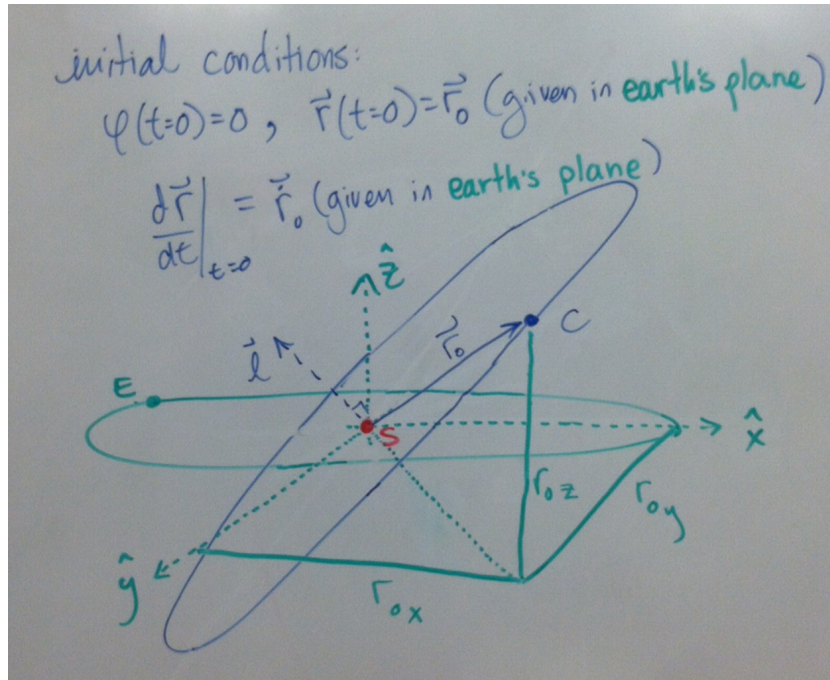 initial conditions:
φ(t=0)=0, r⃗(t=0)=r⃗₀ (given in earth's plane)
dr⃗/dt|ₜ₌₀ = r⃗̇₀ (given in earth's plane)
ẑ
C
r⃗₀
l⃗
E
S
x̂
r₀z
r₀y
ŷ
r₀x